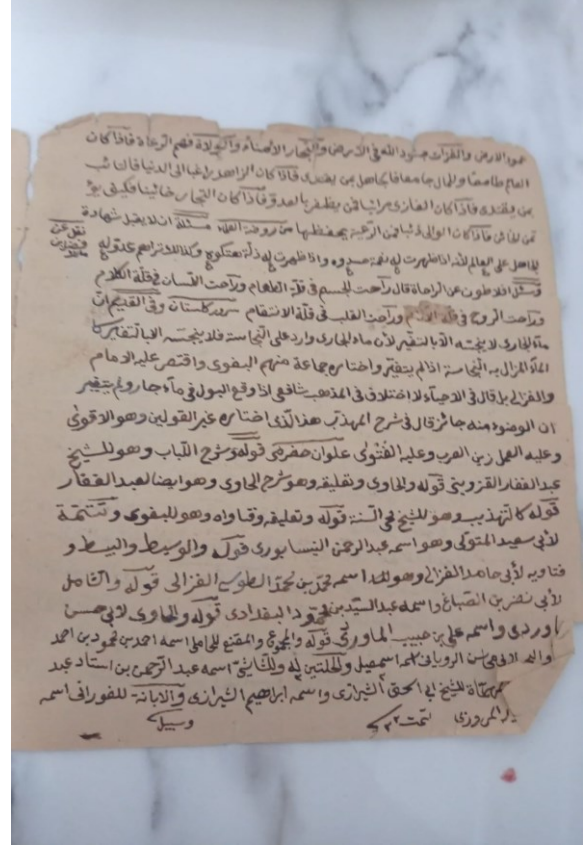 عمود الارض والغزات جنود الله فى الارض والتجار الامناء والولاة فهم الرعاة فاذا كان
العالم طامعا والمال جامعا فالجاهل بمن يقتدى فاذا كان الزاهد راغبا الى الدنيا فالتائب
بمن يقتدى فاذا كان الغازى مرائيا فمن يظفر بالعدو فاذا كان التجار خائنا فكيف
فاذا كان الوالى ذئبا فمن الرعية يحفظها من روضة العلماء مسئلة ان لا يقبل شهادة
الجاهل على العالم لانه اذا ظهرت له نعمة حسدوه واذا ظهرت له ذلة هتكوه وكذا لا تراهم عدوله
نقل عن
وسئل افلاطون عن الراحة قال راحت الجسم فى قلة الطعام وراحت اللسان فى قلة الكلام
وراحت الروح فى قلة وراحت القلب فى قلة الانتقام كلستان وفى القديم ان
ماء الجارى لا ينجسه الا بالتغير لأن ماء الجارى وارد على النجاسة فلا ينجسه الا بالتغير كا
الماء المزال به النجاسة اذا لم يتغير واختاره جماعة منهم البغوى واقتصر عليه الامام
والغزالى بل قال فى الاحياء لا اختلاف فى المذهب شافعى اذا وقع البول فى ماء جار ولم يتغير
ان الوضوء منه جائز قال فى شرح المهذب هذا الذى اختاره غير القولين وهو الاقوى
وعليه العمل زين العرب وعليه الفتوى علوان حضرمى قوله وشرح اللباب وهو للشيخ
عبد الغفار القزوينى قوله والحاوى وتعليقه وهو شرح الحاوى وهو ايضا لعبد الغفار
قوله كالتهذيب وهو للشيخ محى السنة قوله وتعليقه وفتاواه وهو للبغوى وتتمة
لأبى سعيد المتوكى وهو اسمه عبد الرحمن النيسابورى قوله والوسيط والبسيط و
فتاويه لأبى حامد الغزالى وهو اسمه محمد بن محمد الطوسى الغزالى قوله والشامل
لأبى نضر بن الصباغ واسمه عبد السيد بن محمود البغدادى قوله والحاوى لابى حسن
ماوردى واسمه على بن حبيب الماوردى قوله والمجموع والمقنع للمحاملى اسمه احمد بن محمود بن احمد
الرويانى اسمه اسمعيل والحلتين له وللشاشى اسمه عبد الرحمن بن استاد عبد
للشيخ ابى اسحق الشيرازى واسمه ابراهيم الشيرازى والابانة للفورانى اسمه
المروزى تمت
وسبيل